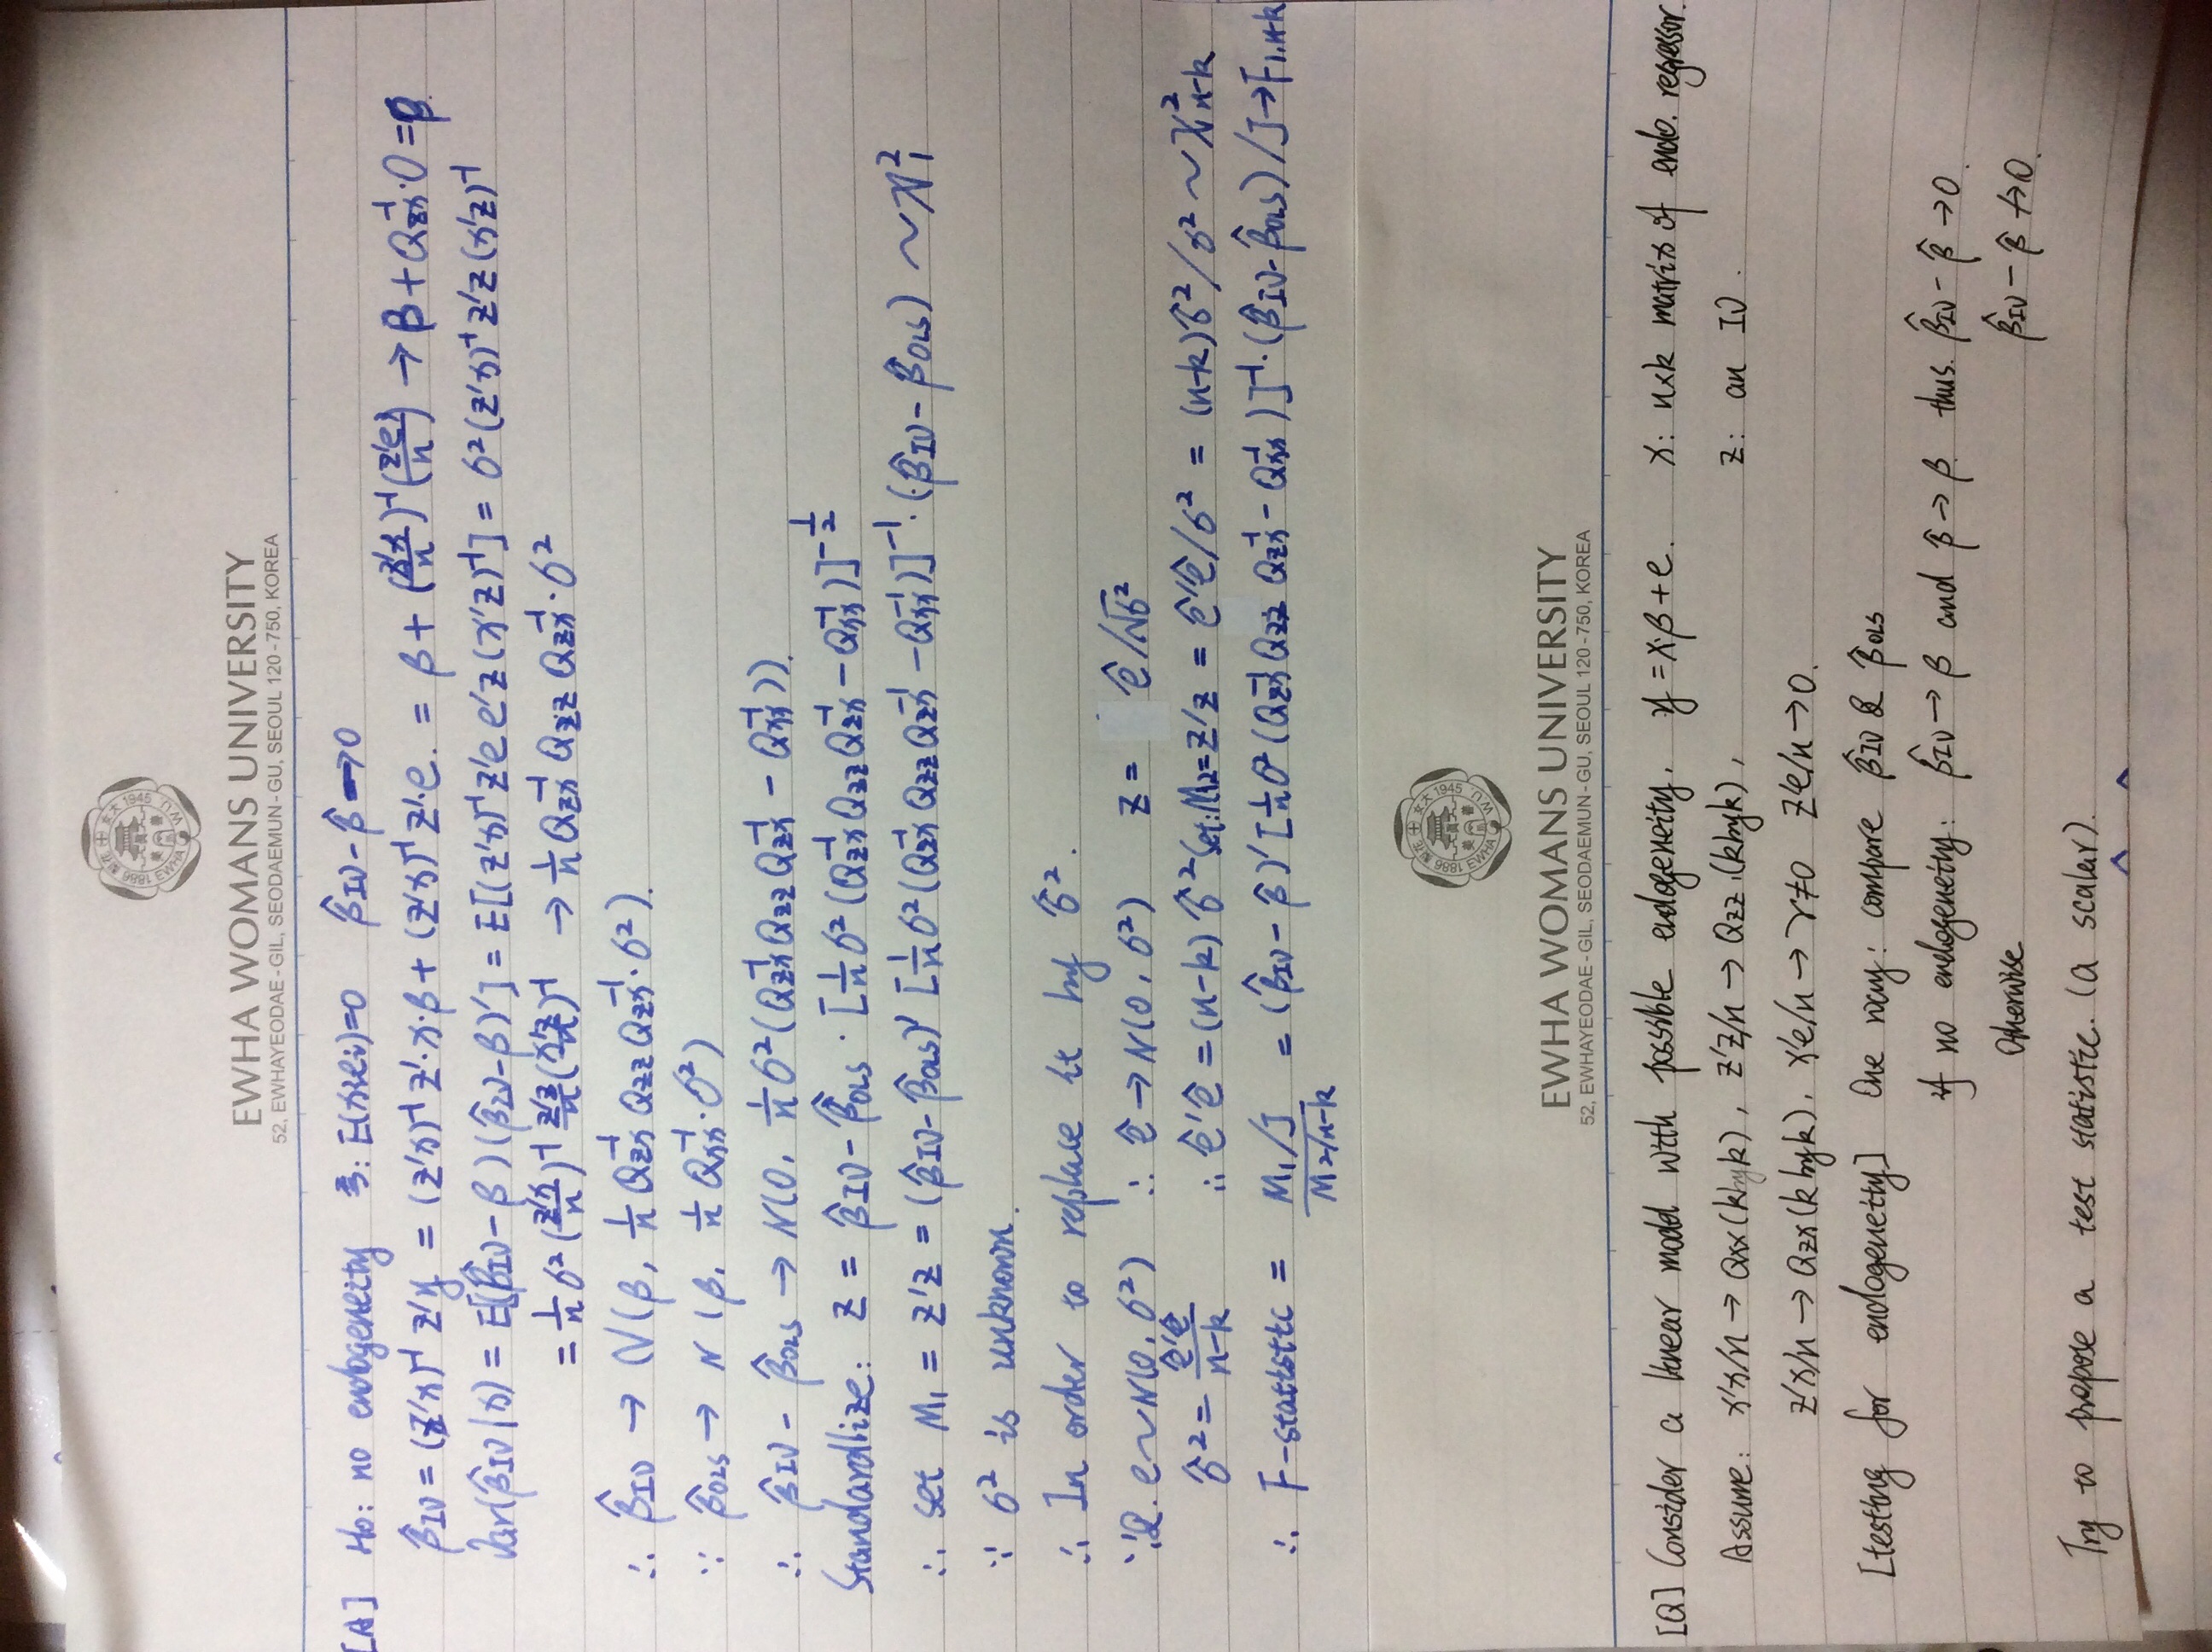 EWHA WOMANS UNIVERSITY
52, EWHAYEODAE-GIL, SEODAEMUN-GU, SEOUL 120-750, KOREA
[A] H0: no endogeneity 즉: E(xiei)=0 β̂IV-β̂→0
β̂IV=(z'x)⁻¹z'y = (z'x)⁻¹z'·x·β+(z'x)⁻¹z'·e. = β+(z'x/n)⁻¹(z'e/n) → β+Qzx⁻¹·0=β
Var(β̂IV|x) = E[(β̂IV-β)(β̂IV-β)'] = E[(z'x)⁻¹z'e e'z(x'z)⁻¹] = σ²(z'x)⁻¹z'z(x'z)⁻¹
= 1/n σ²(z'x/n)⁻¹ z'z/n (x'z/n)⁻¹ → 1/n Qzx⁻¹ Qzz Qzx⁻¹·σ²
∴ β̂IV → N(β, 1/n Qzx⁻¹ Qzz Qzx⁻¹·σ²).
∵ β̂OLS → N(β, 1/n Qxx⁻¹·σ²)
∴ β̂IV-β̂OLS → N(0, 1/n σ²(Qzx⁻¹Qzz Qzx⁻¹ - Qxx⁻¹)).
Standardlize: z = β̂IV-β̂OLS·[1/n σ²(Qzx⁻¹Qzz Qzx⁻¹-Qxx⁻¹)]^-1/2
∴ set M1 = z'z = (β̂IV-β̂OLS)'[1/n σ²(Qzx⁻¹Qzz Qzx⁻¹-Qxx⁻¹)]⁻¹·(β̂IV-β̂OLS) ~ χ²1
∵ σ² is unknown.
∴ In order to replace it by σ̂².
∵ e~N(0,σ²) ∴ ê→N(0,σ²) z = ê/√σ²
σ̂² = ê'ê/n-k ∴ ê'ê=(n-k)σ̂² set:M2=z'z = ê'ê/σ² = (n-k)σ̂²/σ² ~ χ²n-k
∴ F-statistic = M1/J / M2/n-k = (β̂IV-β̂)'[1/n σ̂²(Qzx⁻¹Qzz Qzx⁻¹-Qxx⁻¹)]⁻¹·(β̂IV-β̂OLS)/J→F1,n-k
EWHA WOMANS UNIVERSITY
52, EWHAYEODAE-GIL, SEODAEMUN-GU, SEOUL 120-750, KOREA
[Q] Consider a linear model with possible endogeneity. y=x·β+e. x: nxk matrix of endo. regressor.
Assume: x'x/n → Qxx(kbyk), z'z/n → Qzz.(kbyk), z: an IV.
z'x/n → Qzx(kbyk). x'e/n → γ≠0 z'e/n→0.
[testing for endogeneity] One way: compare β̂IV & β̂OLS
if no endogeneity: β̂IV→β and β̂→β thus. β̂IV-β̂→0.
Otherwise β̂IV-β̂↛0.
Try to propose a test statistic. (a scalar).